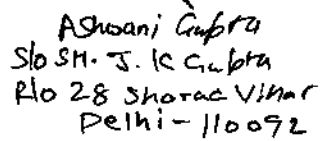 Ashwani Gupta
S/o SH. J. K Gupta
R/o 28 Sharad Vihar
Delhi - 110092